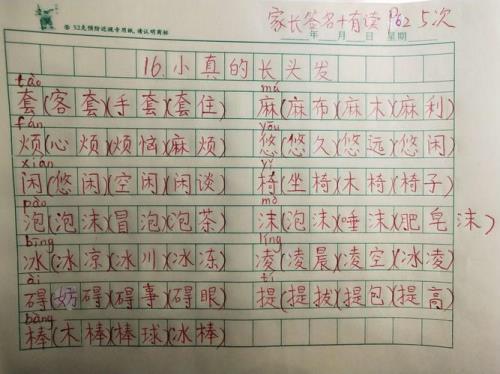 ® 52克预防近视专用纸,请认明商标
家长签名+有读 P62 5次
年 月 日 星期
16.小真的长头发
tào má
套(客套)(手套)(套住) 麻(麻布)(麻木)(麻利)
fán yōu
烦(心烦)(烦恼)(麻烦) 悠(悠久)(悠远)(悠闲)
xián yǐ
闲(悠闲)(空闲)(闲谈) 椅(坐椅)(木椅)(椅子)
pào mò
泡(泡沫)(冒泡)(泡茶) 沫(泡沫)(唾沫)(肥皂沫)
bīng líng
冰(冰凉)(冰川)(冰冻) 凌(凌晨)(凌空)(冰凌)
ài tí
碍(妨碍)(碍事)(碍眼) 提(提拔)(提包)(提高)
bàng
棒(木棒)(棒球)(冰棒)